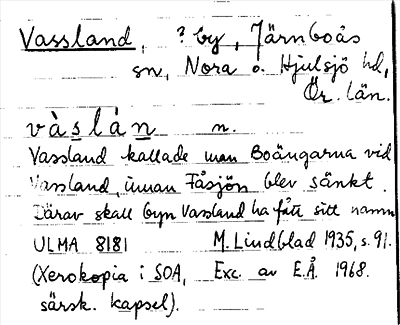 Vassland, ? by, Järnboås
sn, Nora o. Hjulsjö hd,
Ör. län.
vàslàn n.
Vassland kallade man Boängarna vid
Vassland, innan Fåsjön blev sänkt.
Därav skall byn Vassland ha fått sitt namn
ULMA 8181 M. Lindblad 1935, s. 91.
(Xerokopia i SOA, Exc. av E.Å 1968.
särsk. kapsel).